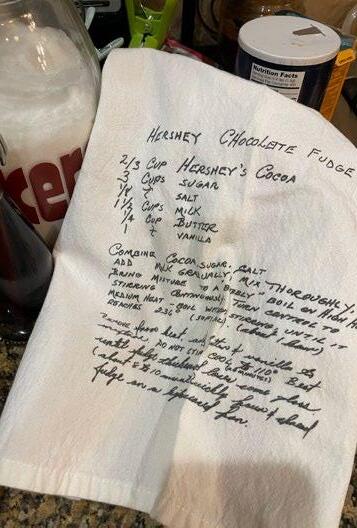 Nutrition Facts
cer
HERSHEY CHOCOLETE FUDGE
2/3 CUP HERSHEY'S COCOA
3 CUPS SUGAR
1/8 t SALT
1 1/2 CUPS MILK
1/4 CUP BUTTER
1 t VANILLA
COMBINE COCOA, SUGAR, SALT
ADD MILK GRADUALLY, MIX THOROUGHLY.
BRING MIXTURE TO A "BUBBLY" BOIL ON HIGH
STIRRING CONTINUOUSLY. TURN CONTROL TO
MEDIUM HEAT BOIL WITHOUT STIRRING, UNTIL IT
REACHES 234°
Remove from heat, add vanilla to
mixture. DO NOT STIR. COOL to 110° Beat
until fudge thickens loses some gloss
(about 8 to 10 minutes) quickly pour & spread
fudge in a buttered pan.